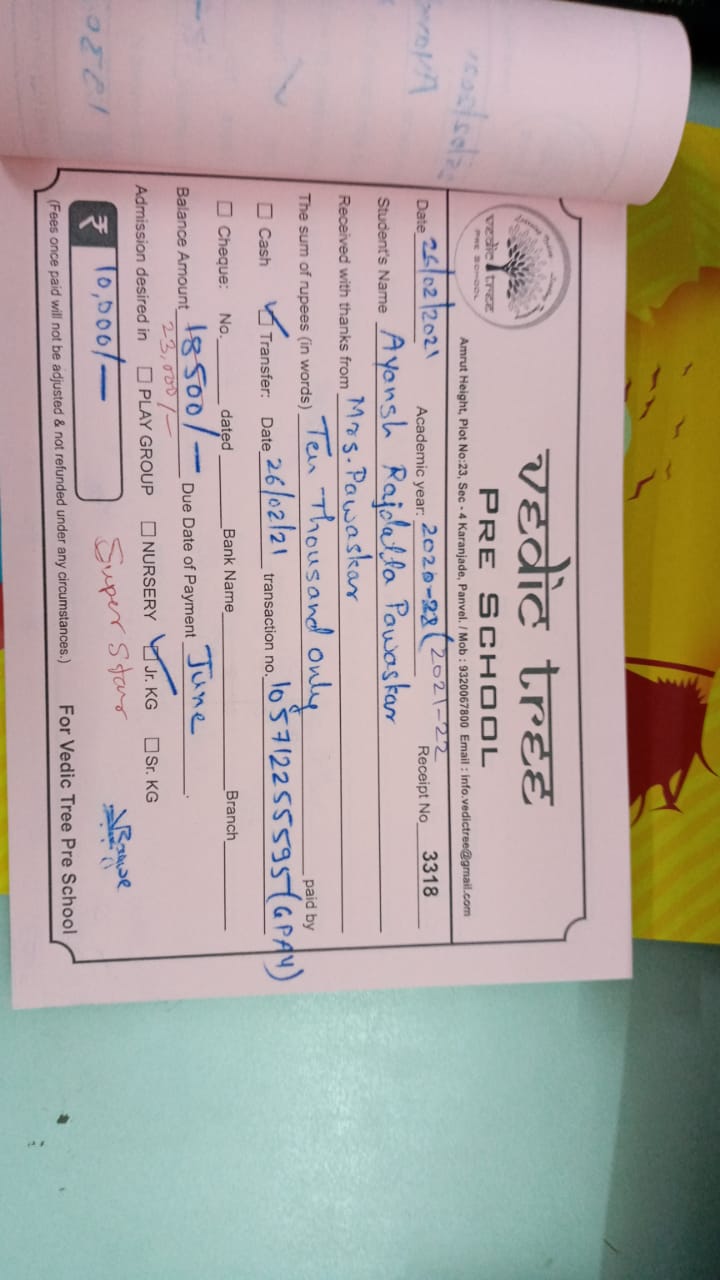 vedic tree
PRE SCHOOL
vedic tree
PRE SCHOOL
Amrut Height, Plot No:23, Sec - 4 Karanjade, Panvel. / Mob : 9320067800 Email : info.vedictree@gmail.com
Date 26/02/2021 Academic year: 2020-22 (2021-22 Receipt No 3318
Student's Name Ayansh Rajdatta Pawaskar
Received with thanks from Mrs. Pawaskar
The sum of rupees (in words) Ten Thousand Only paid by
Cash ✓ Transfer: Date 26/02/21 transaction no. 105712255595 (GPAY)
Cheque: No. dated Bank Name Branch
Balance Amount 18500/- Due Date of Payment June
23,000/-
Admission desired in PLAY GROUP NURSERY ✓ Jr. KG Sr. KG
₹ 10,000/- Super Star
(Fees once paid will not be adjusted & not refunded under any circumstances.) For Vedic Tree Pre School